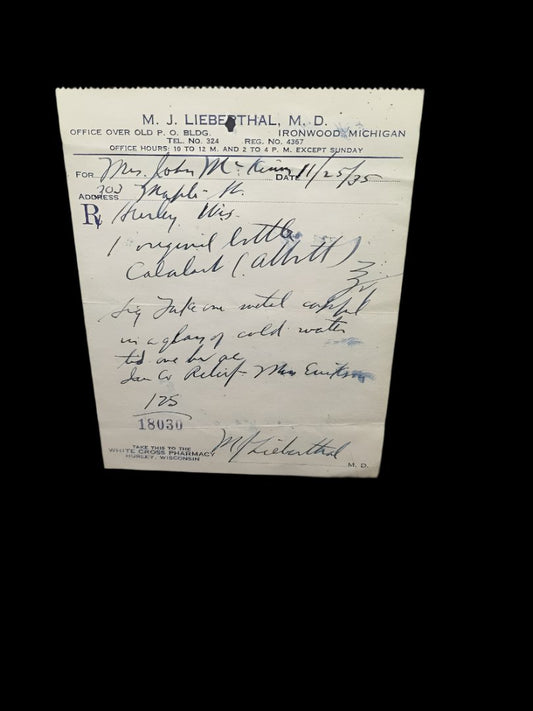 M. J. LIEBERTHAL, M. D.
OFFICE OVER OLD P. O. BLDG. IRONWOOD, MICHIGAN
TEL. NO. 324 REG. NO. 4367
OFFICE HOURS: 10 TO 12 M. AND 2 TO 4 P. M. EXCEPT SUNDAY
FOR Mrs. John DATE 11/25/35
ADDRESS Maple St.
Rx Hurley Wis.
1 original bottle
(Abbott)
Sig Take one capful
in a glass of cold water
tid one hr
Relief - Mrs
125
18030
TAKE THIS TO THE
WHITE CROSS PHARMACY
HURLEY, WISCONSIN
MJ Lieberthal
M. D.